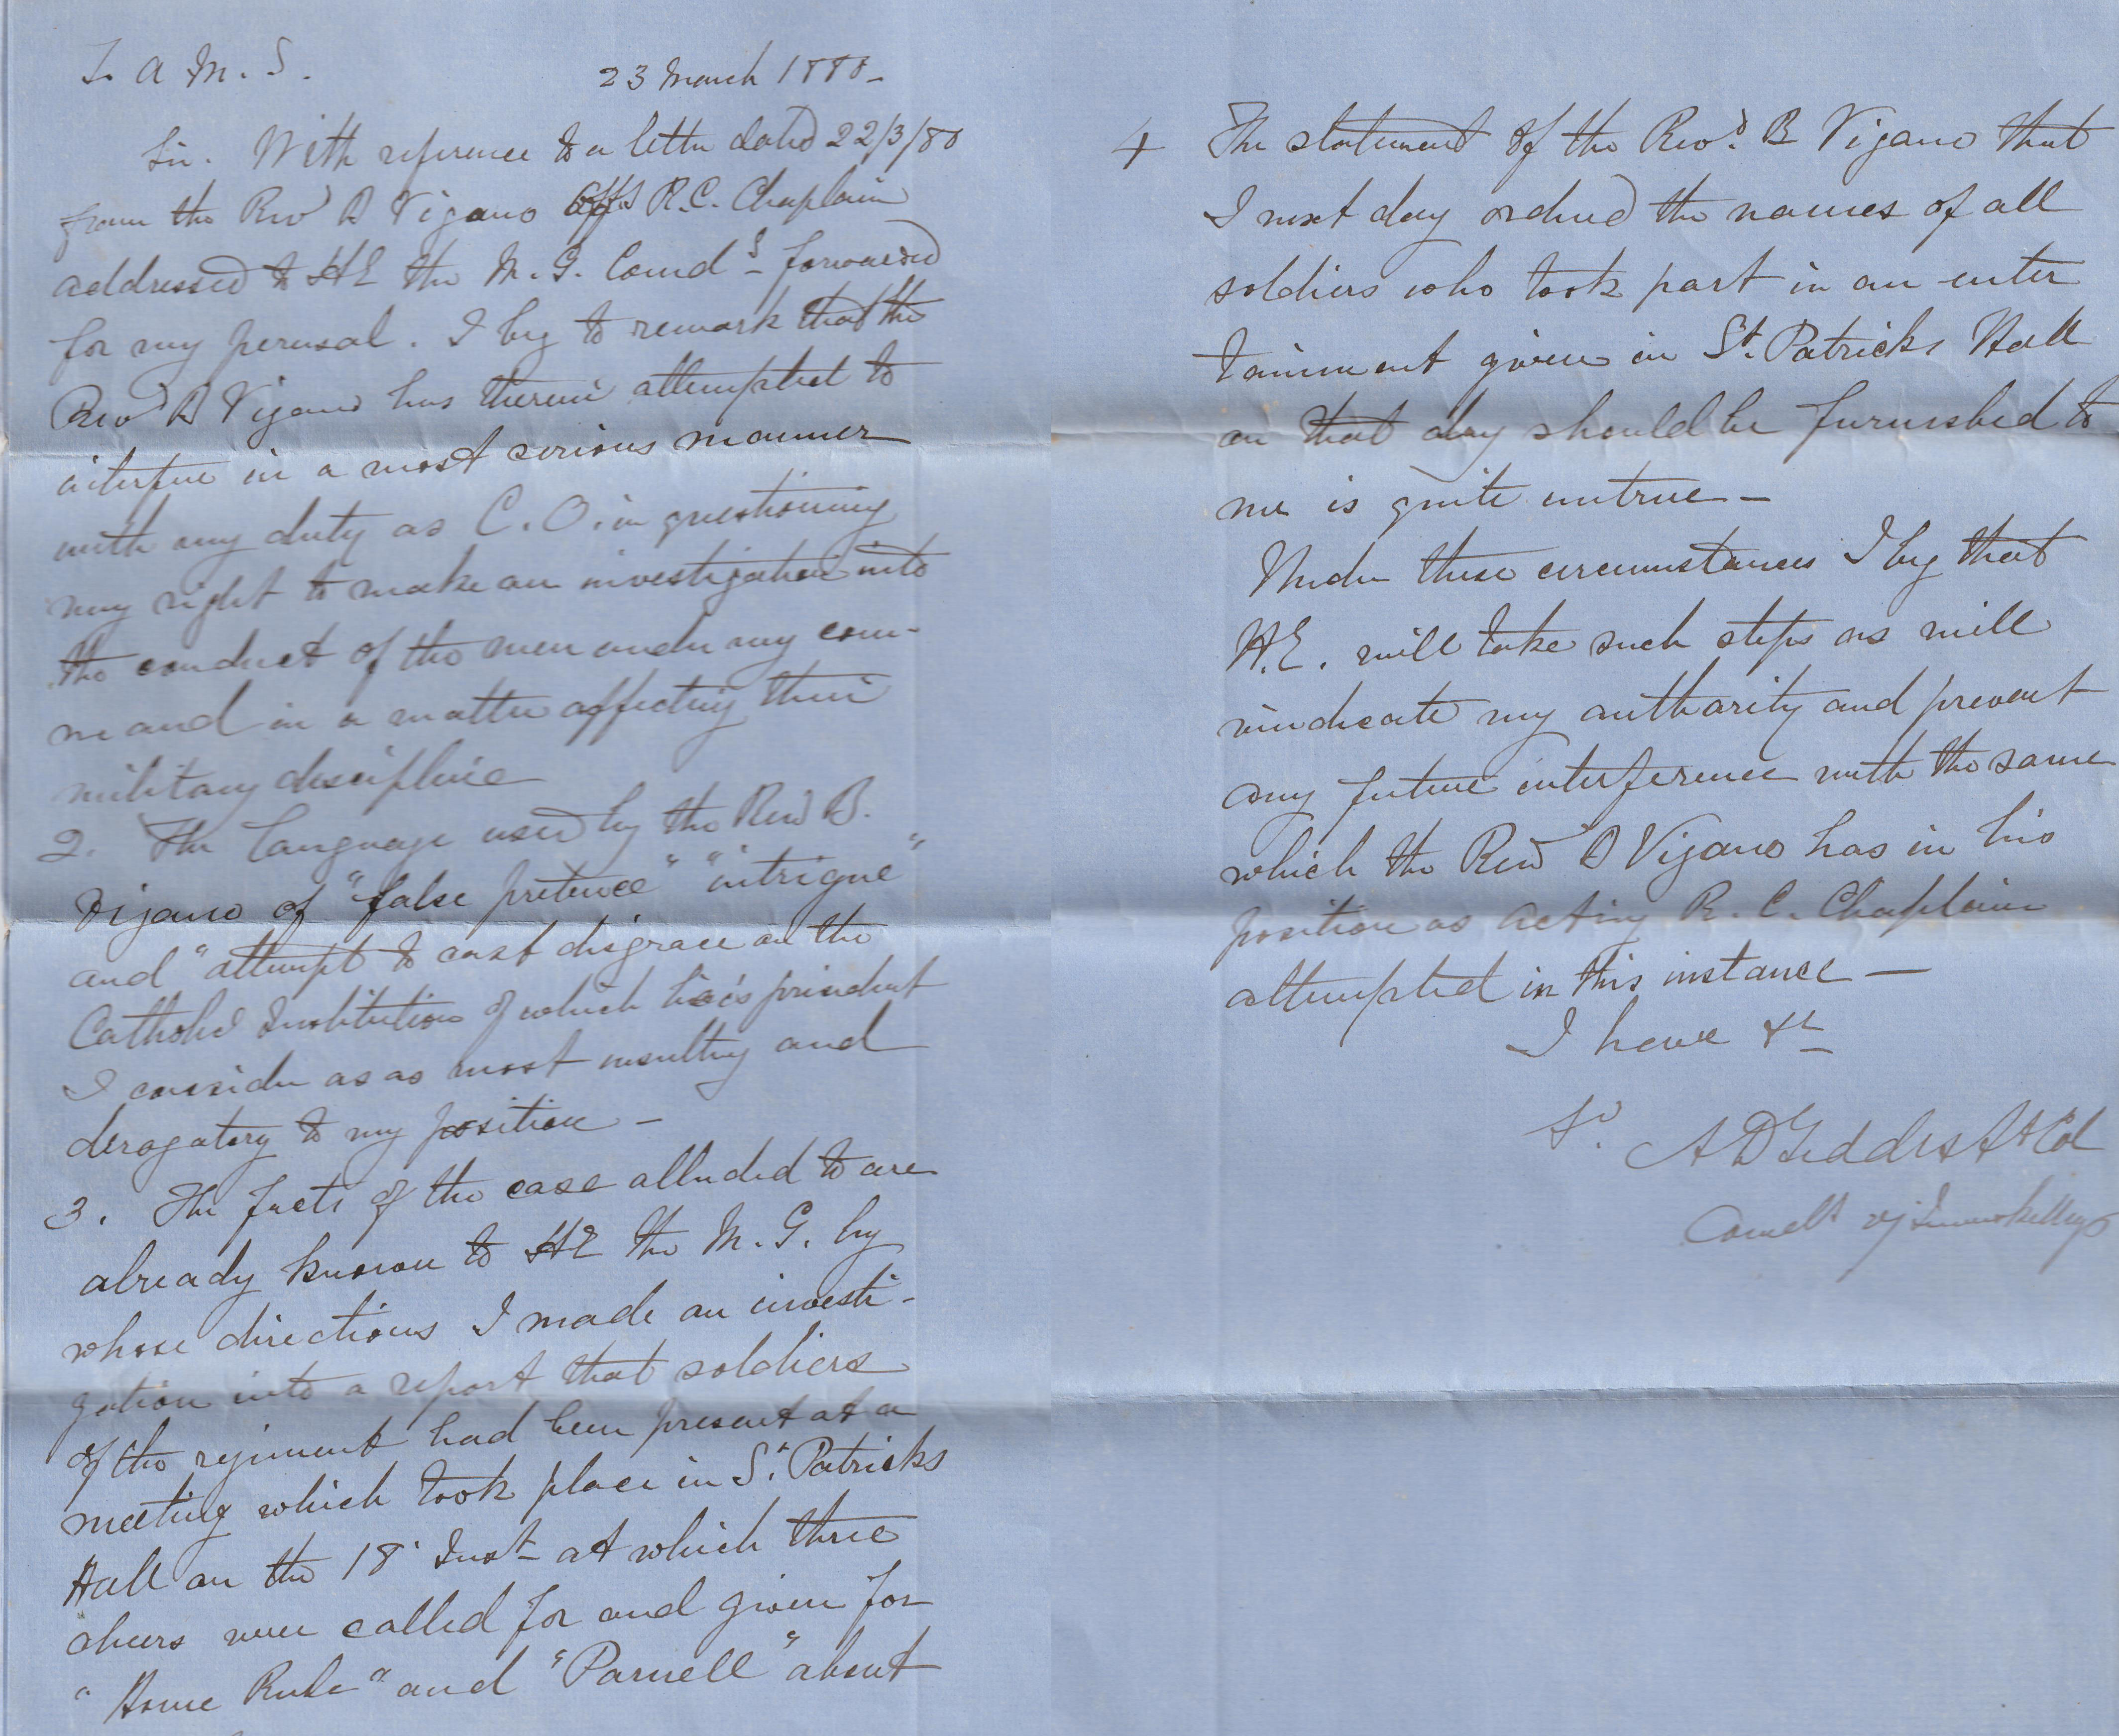 T. A M. S.
23 March 1880 -
Sir. With reference to a letter dated 22/3/80
from the Revd B Vigano Offg R.C. Chaplain
addressed to HE the M. G. Comdg forwarded
for my perusal. I beg to remark that the
Revd B Vigano has therein attempted to
interfere in a most serious manner
with my duty as C. O. in questioning
my right to make an investigation into
the conduct of the men under my com-
mand in a matter affecting their
military discipline
2. The language used by the Revd B.
Vigano of "false pretence" "intrigue"
and "attempt to cast disgrace on the
Catholic Institution of which he is president
I consider as as most insulting and
derogatory to my position -
3. The facts of the case alluded to are
already known to HE the M. G. by
whose directions I made an investi-
gation into a report that soldiers
of the regiment had been present at a
meeting which took place in St. Patricks
Hall on the 18 Inst at which three
cheers were called for and given for
"Home Rule" and "Parnell" about
4 The statement of the Revd. B Vigano that
I next day ordered the names of all
soldiers who took part in an enter
tainment given in St. Patricks Hall
on that day should be furnished to
me is quite untrue -
Under these circumstances I beg that
H.E. will take such steps as will
vindicate my authority and prevent
any future interference with the same
which the Revd B Vigano has in his
position as acting R. C. Chaplain
attempted in this instance -
I have &c
Sd. A D Geddes Lt Col
Comdt 27 Inniskillings